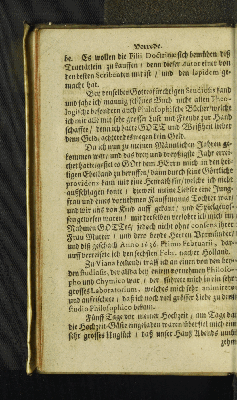 Vorrede.
be. Es wollen die Filii Doctrinæ sich bemühen diß
Tractätlein zu kauffen / denn dieser Autor einer von
den besten Scribenten mit ist / und den lapidem ge-
macht hat.
Bey denselben Gottsfürchtigen
und sahe ich mannig schönes Buch nicht allein Theo-
logische besondern auch Philosophische Bücher / welche
ich mir alle mit sehr grosser Lust und Freude zur Hand
schaffte / denn ich hatte GOTT und Weißheit lieber
denn Geld, achtete deswegen kein Geld.
Da ich nun zu meinen Männlichen Jahren ge-
kommen war, und das drey und dreyßigste Jahr errei-
chet hatte / gefiel es GOtt dem HErrn mich in den hei-
ligen Ehestand zu beruffen / dann durch seine Göttliche
providenz kam mir eine Heurath für / welche ich nicht
ausschlagen konte / dieweil meine Liebste eine Jung-
frau und eines vornehmen Kauffmanns Tochter war
und wir uns von Kind auff gekant / und
gewesen waren / mit derselben verlobte ich mich im
Nahmen GOTTES jedoch nicht ohne consens ihrer
Frau Mutter / und ihrer beyde Herrn Vormünder
und diß geschah Anno 1636. Primo Februarii, dar-
nach verreisete ich den sechsten Febr. nacher Holland.
Zu Viana kommende traff ich an einen von den bey-
den studiosis, der alda bey einem vornehmen Philoso-
pho und Chymico war / der führete mich in ein sehr
grosses Laboratorium, welches mich sehr animirete
und auffreitzete / daß ich noch viel grösser Liebe zu dem
studio Philosophico bekam.
Fünff Tage vor meiner Hochzeit / am Tage da
die Hochzeit-Gäste eingeladen waren überfiel mich ein
sehr grosses Unglück / daß unser Hauß Abends umb
zehen